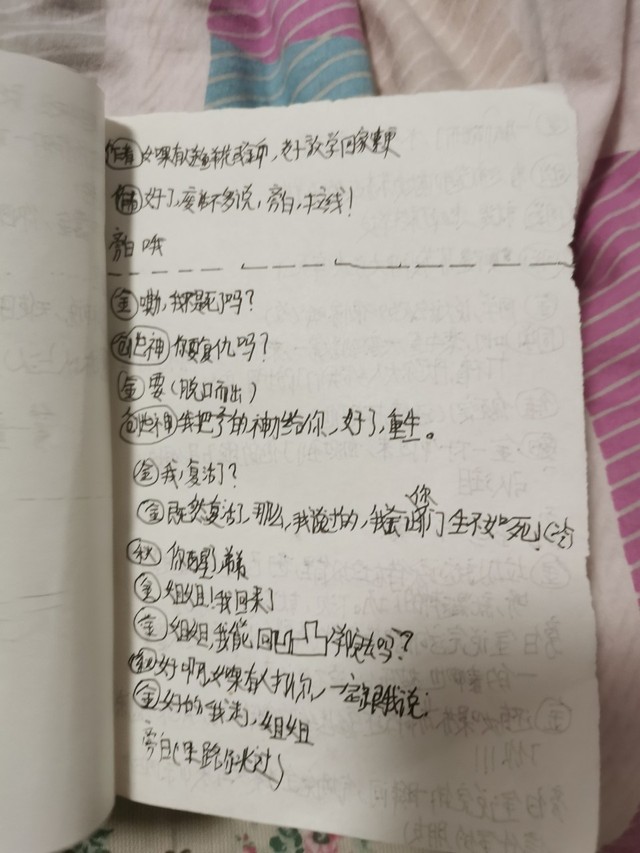 作者 如果有 老子放学回家
作者 好了,废话不多说,旁白,拉线!
旁白 哦
金 嘞,我不是死了吗?
创世神 你要复仇吗?
金 要(脱口而出)
创世神 我把我的神力给你,好了,重生。
金 我,复活了?
金 既然复活了,那么,我说过的,我会让你们生不如死!(冷
秋 你醒了,弟弟
金 姐姐!我回来了
金 姐姐,我能回凹凸学院去吗?
秋 好啊,如果有人打你,一定跟我说
金 好的,我走了,姐姐
旁白(来路